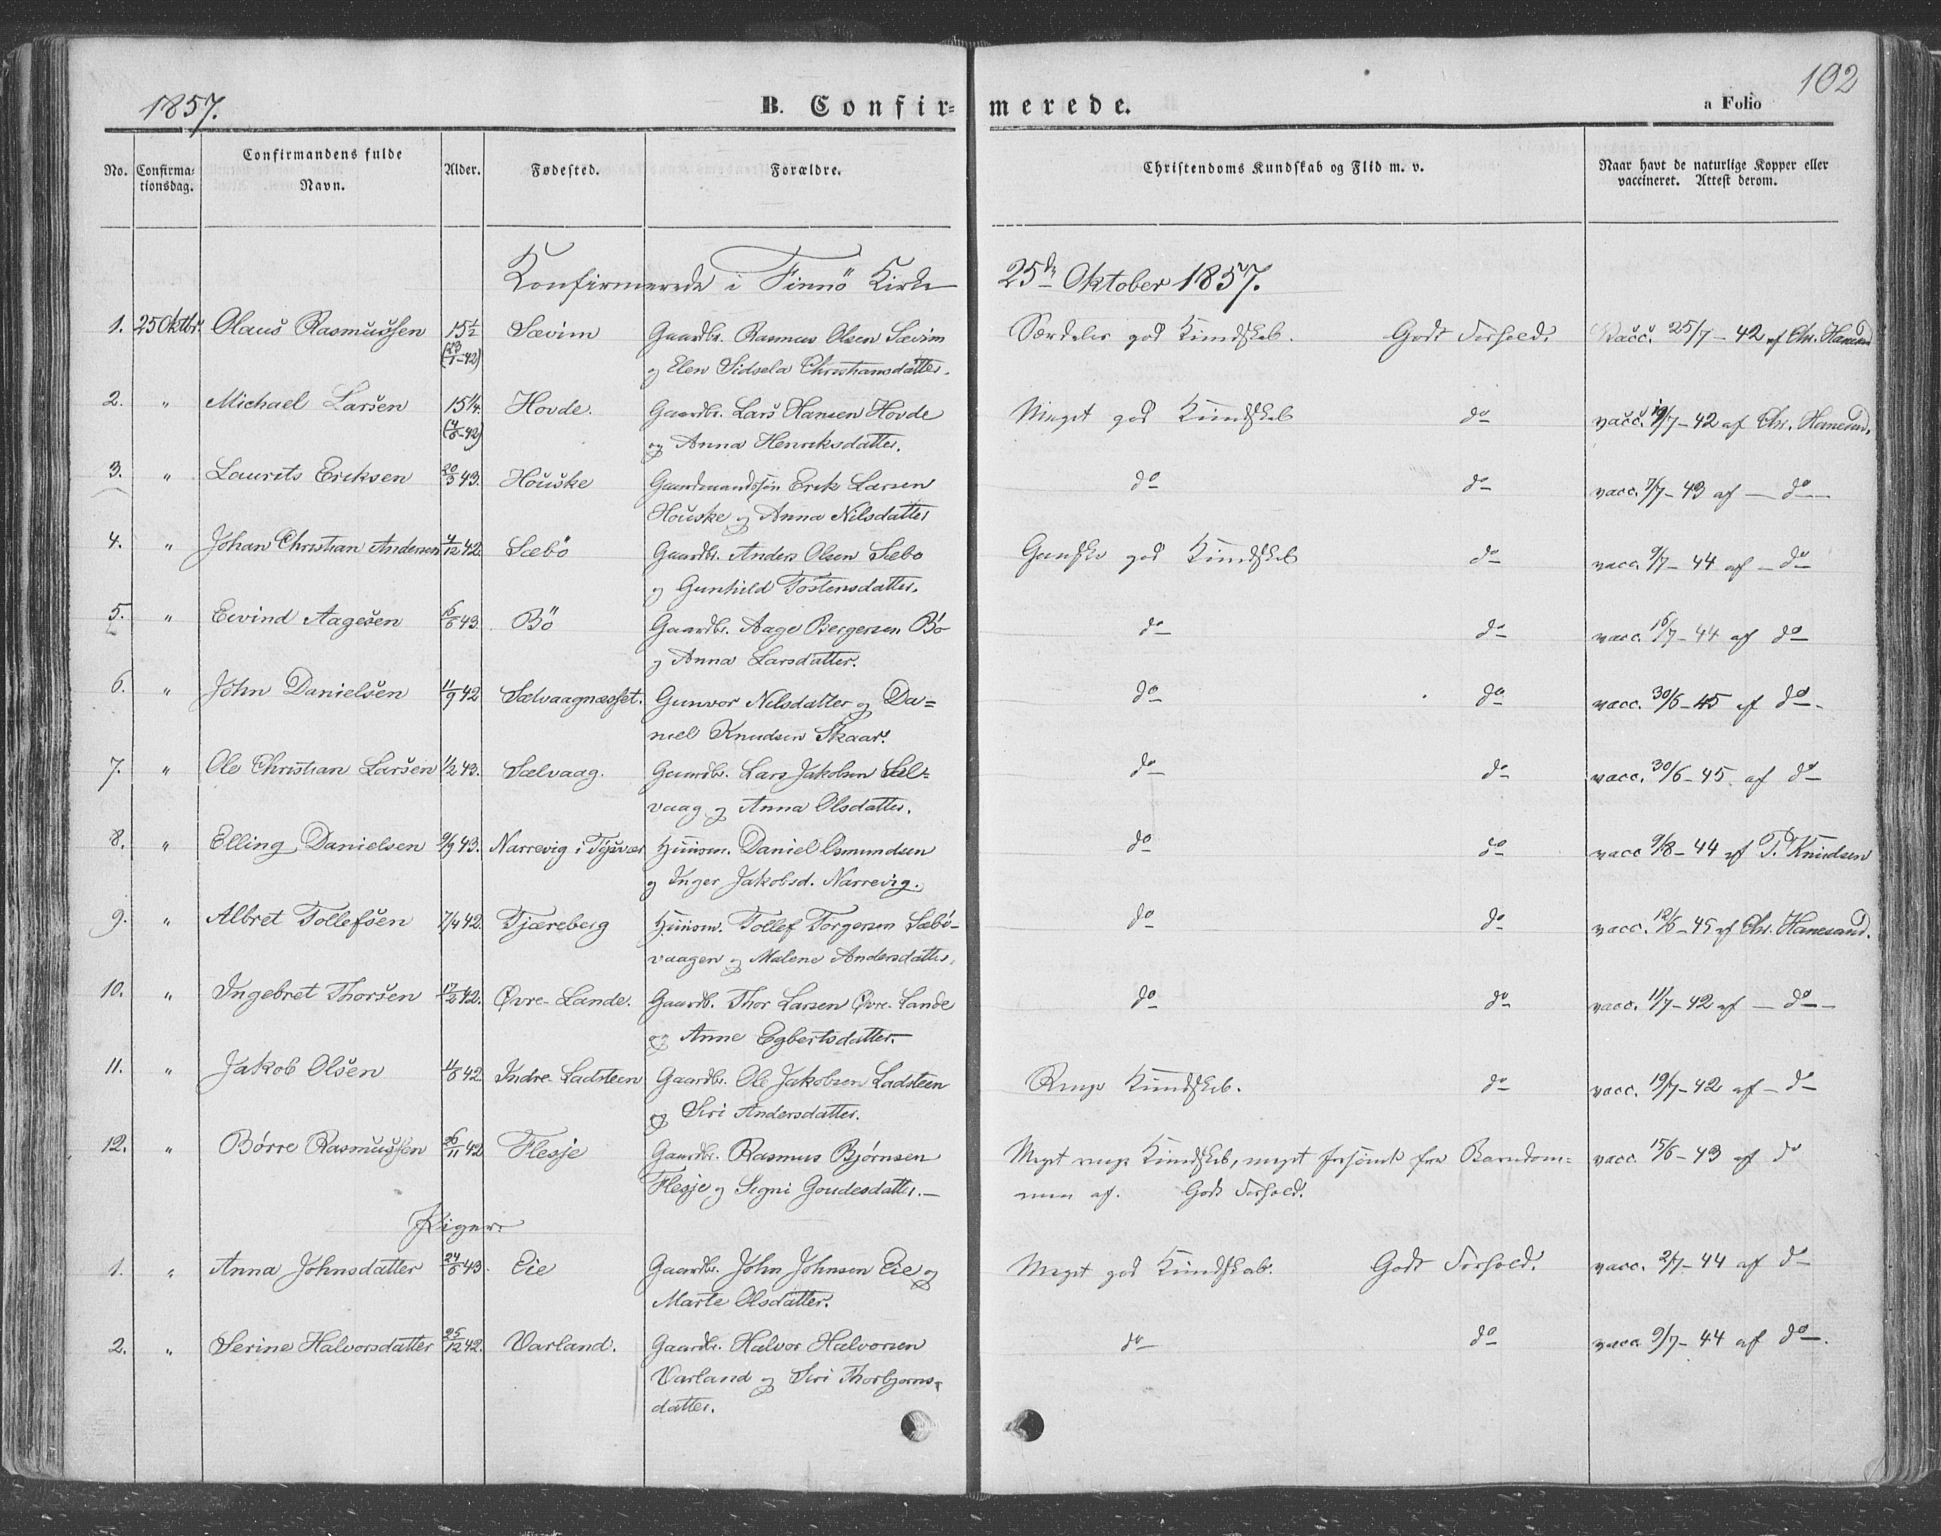 1857.
B. Confirmerede.
a Folio 102
No. Confirmationsdag. Confirmandens fulde Navn. Alder. Fødested. Forældre. Christendoms Kundskab og Flid m. v. Naar havt de naturlige Kopper eller vaccineret. Attest derom.
Konfirmerede i Finnö Kirke 25de Oktober 1857.
1. 25 Oktbr. Olaus Rasmussen 15½ Sævim Gaardbr. Rasmus Olsen Sævim Særdeles god Kundskab. Godt Forhold. Vacc. 25/7-42 af Chr. Hanesand
og Elen Sidsela Christiansdatter.
2. " Michael Larsen 15¼ Hovde. Gaardbr. Lars Hansen Hovde Meget god Kundskab do vacc. 19/7-42 af Chr. Hanesand.
og Anna Henriksdatter.
3. " Laurits Eriksen 20/3 43. Houske Gaardmandssøn Erik Larsen do do vacc. 7/7-43 af — do —
Houske og Anna Nilsdatter
4. " Johan Christian Andersen 4/12 42. Sæbö Gaardbr. Anders Olsen Sæbo Ganske god Kundskab do vacc. 9/7-44 af — do
og Gunhild Tostensdatter.
5. " Eivind Aagesen 16/6 43. Bö Gaardbr. Aage Bergersen Bö do do vacc. 16/7-44 af do
og Anna Larsdatter.
6. " John Danielsen 11/9 42 Sælvaagnæsset. Gunvor Nilsdatter og Da= do do vacc. 30/6-45 af do
niel Knudsen Skaar.
7. " Ole Christian Larsen 1/2 43. Sælvaag. Gaardbr. Lars Jakobsen Sæl- do do vacc. 30/6-45 af do
vaag og Anna Olsdatter.
8. " Elling Danielsen 9/9 43. Narrevig i Tysvær Huusm. Daniel Osmundsen do do vacc 9/8-44 af T. Knudsen
og Inger Jakobsd. Narrevig.
9. " Albret Tollefsen 7/4 42. Fjæreberg Huusm. Tollef Torgersen Sæbö- do do vacc. 12/6-45 af Chr. Hanesand.
vaagen og Malene Andersdatter.
10. " Ingebret Thorsen 17/2 42. Øvre-Lande. Gaardb. Thor Larsen Øvre-Lande do do vacc. 11/7-42 af — do —
og Anne Egbertsdatter.
11. " Jakob Olsen 11/8 42. Indre-Ladsteen Gaardbr. Ole Jakobsen Ladsteen Kundskab. do vacc. 19/7-42 af — do
og Siri Andersdatter.
12. " Børre Rasmussen 26/11 42 Flesje Gaardbr. Rasmus Bjørnsen Meget Kundskab, meget forsömt fra Barndom= vacc. 15/6-43 af do
Flesje og Signi Goudesdatter. — men af. Godt Forhold.
Piger.
1. " Anna Johnsdatter 24/6 43. Eie Gaardbr. John Johnsen Eie og Meget god Kundskab. Godt Forhold. vacc. 2/7-44 af do
Marte Olsdatter.
2. " Serine Halvorsdatter 25/12 42. Varland. Gaardbr. Halvor Halvorsen do do vacc. 9/7-44 af do.
Varland og Siri Thorbjorns-
datter.